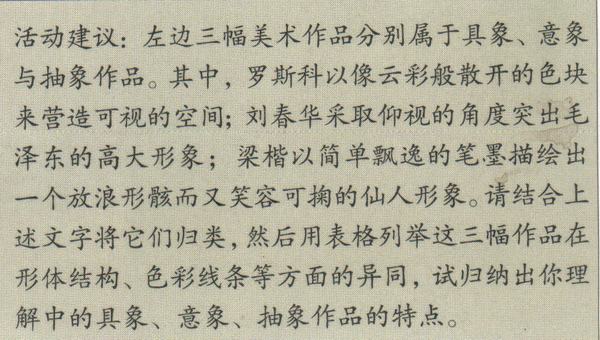 活动建议：左边三幅美术作品分别属于具象、意象
与抽象作品。其中，罗斯科以像云彩般散开的色块
来营造可视的空间；刘春华采取仰视的角度突出毛
泽东的高大形象；梁楷以简单飘逸的笔墨描绘出
一个放浪形骸而又笑容可掬的仙人形象。请结合上
述文字将它们归类，然后用表格列举这三幅作品在
形体结构、色彩线条等方面的异同，试归纳出你理
解中的具象、意象、抽象作品的特点。